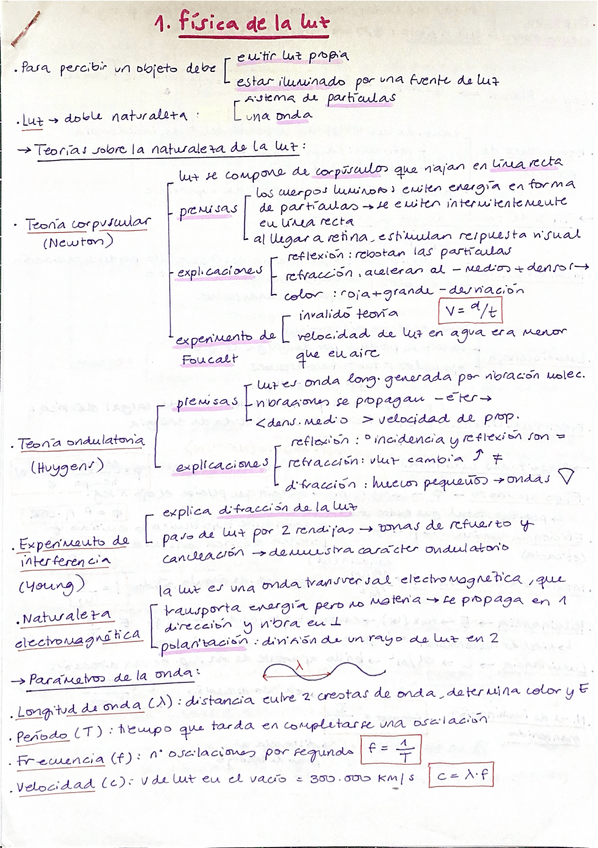 1. física de la luz
emitir luz propia
· Para percibir un objeto debe
estar iluminado por una fuente de luz
sistema de partículas
· Luz → doble naturaleza :
una onda
→ Teorías sobre la naturaleza de la luz :
luz se compone de corpúsculos que viajan en línea recta
los cuerpos luminosos emiten energía en forma
premisas
de partículas → se emiten intermitentemente
en línea recta
al llegar a retina, estimulan respuesta visual
· Teoría corpuscular
(Newton)
reflexión : rebotan las partículas
explicaciones
refracción, aceleran al – medios + densos →
color : roja + grande – desviación
invalidó teoría
V = d/t
experimento de
Foucalt
velocidad de luz en agua era menor
que en aire
luz es onda long. generada por vibración molec.
premisas
vibraciones se propagan – éter →
< dens. medio > velocidad de prop.
· Teoría ondulatoria
(Huygens)
reflexión : º incidencia y reflexión son =
explicaciones
refracción : vluz cambia ↑ ≠
difracción : huecos pequeños → ondas
explica difracción de la luz
· Experimento de
interferencia
(Young)
paso de luz por 2 rendijas → zonas de refuerzo y
cancelación → demuestra carácter ondulatorio
la luz es una onda transversal electromagnética, que
· Naturaleza
electromagnética
transporta energía pero no materia → se propaga en 1
dirección y vibra en ⊥
polarización : división de un rayo de luz en 2
→ Parámetros de la onda :
λ
· Longitud de onda (λ) : distancia entre 2 crestas de onda, determina color y E
· Período (T) : tiempo que tarda en completarse una oscilación
· Frecuencia (f) : nº oscilaciones por segundo f = 1/T
· Velocidad (c) : v de luz en el vacío = 300.000 km/s c = λ·f